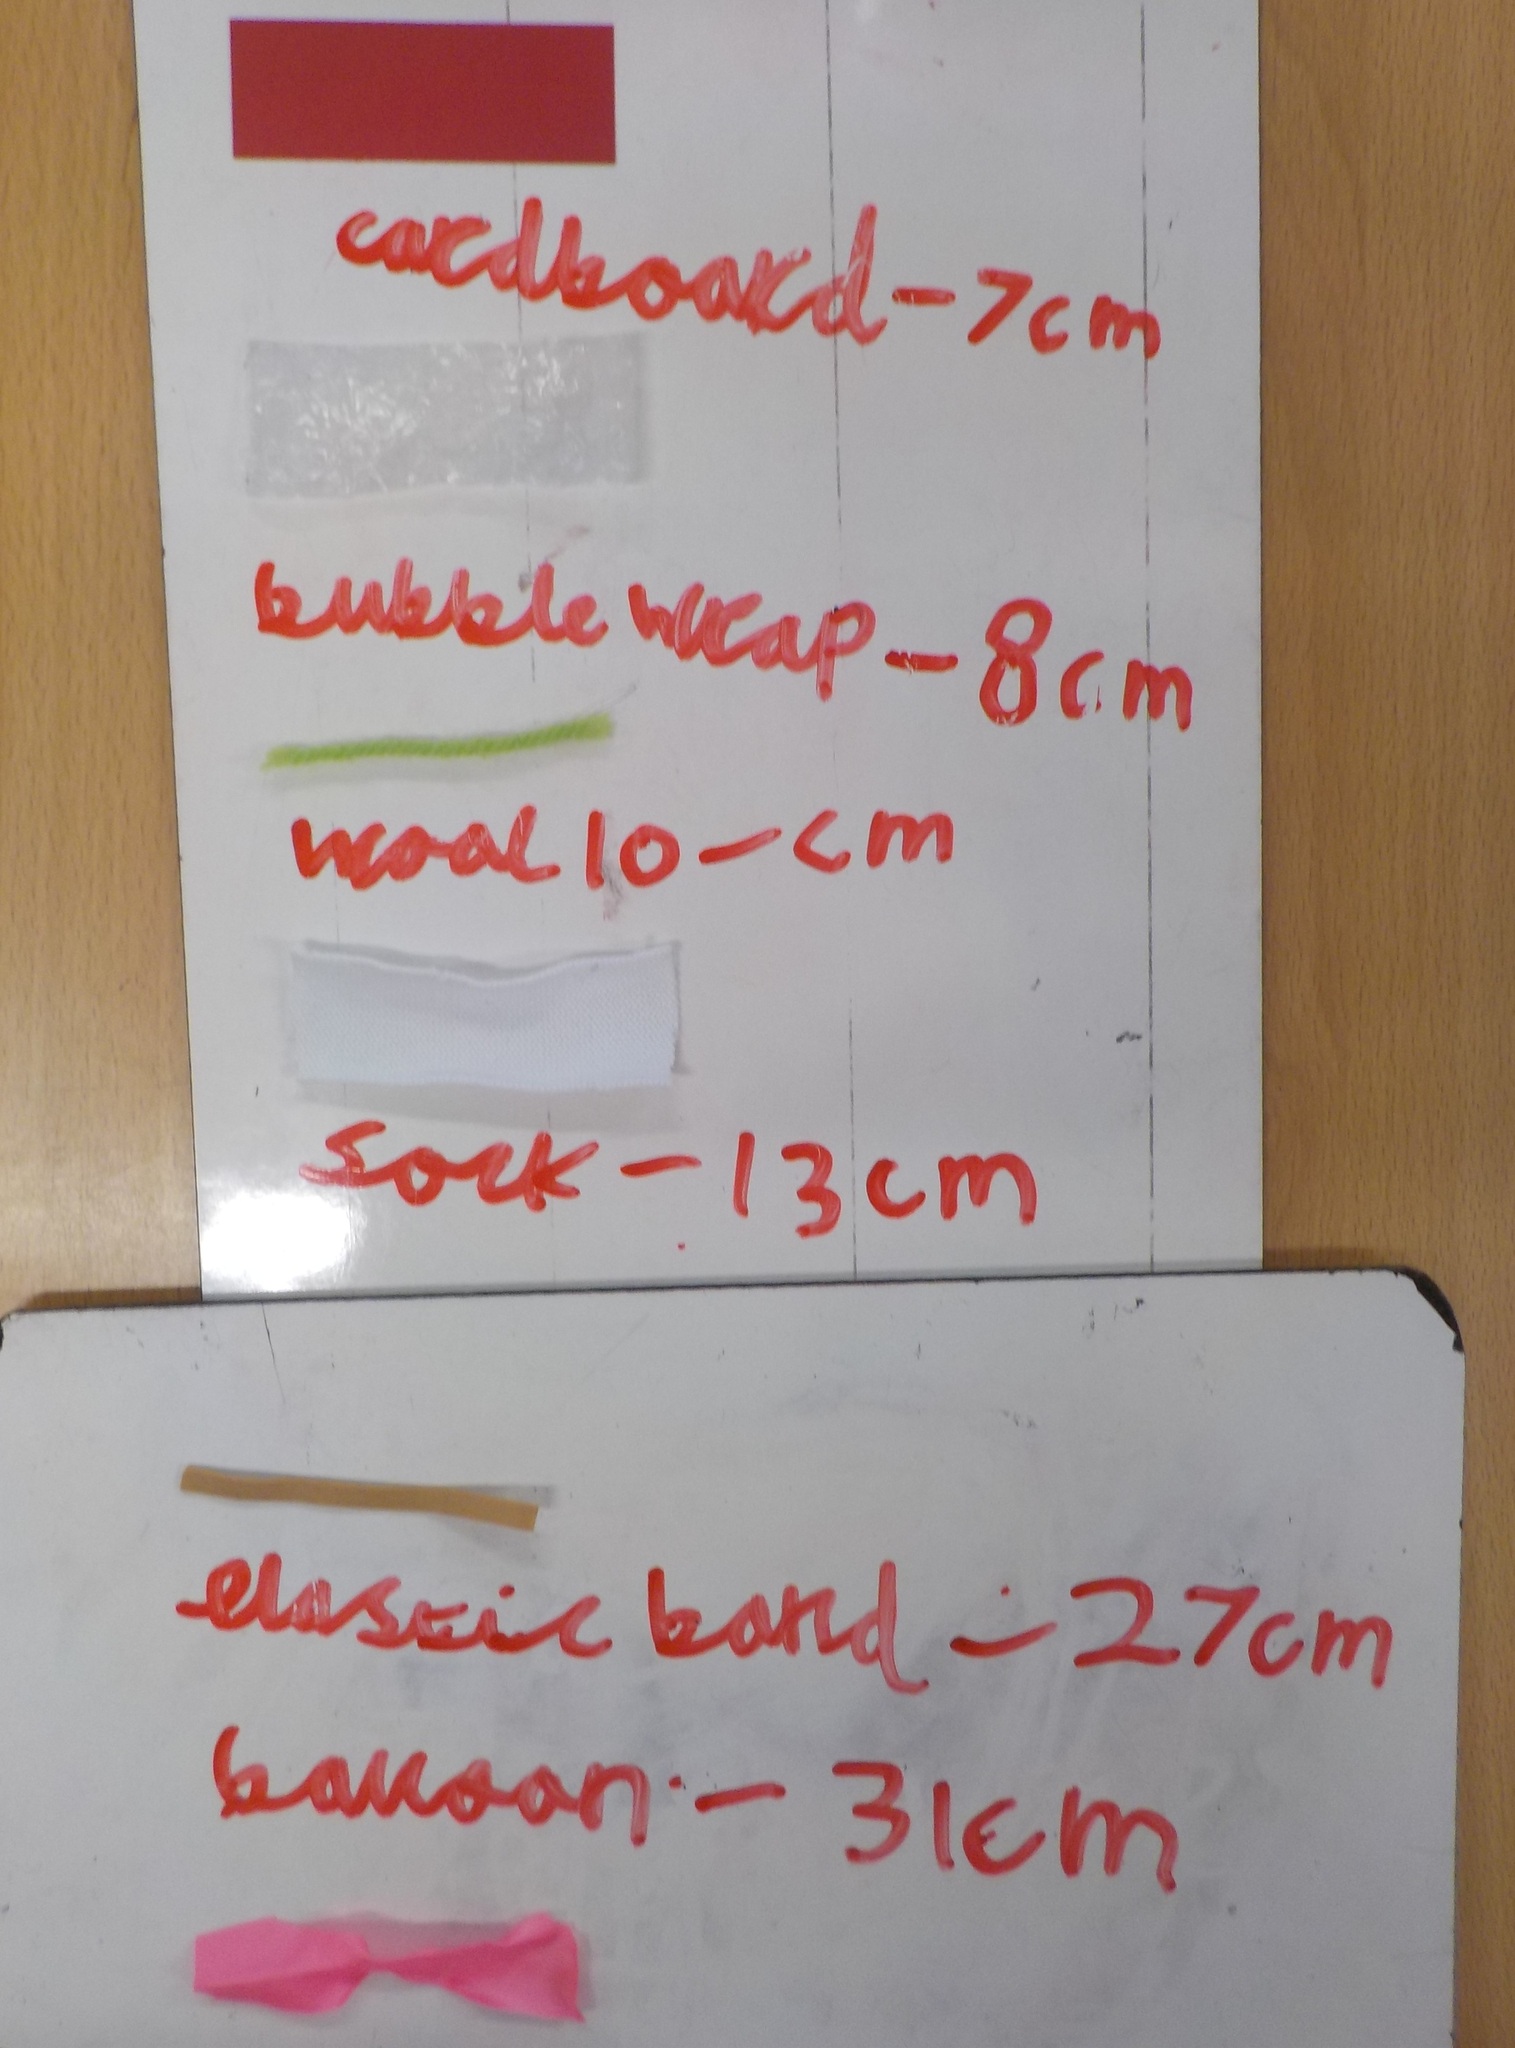 cardboard - 7cm
bubble wrap - 8cm
wool 10 - cm
sock - 13cm
elastic band - 27cm
balloon - 31cm